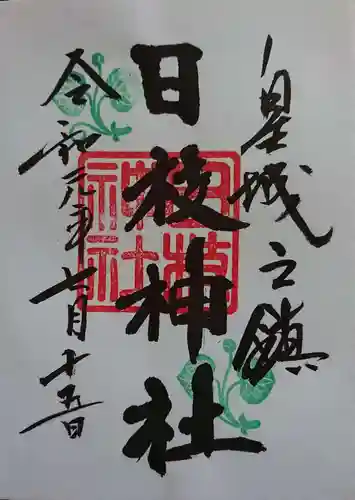 皇城之鎮
日枝神社
令和元年七月十五日
日枝神社